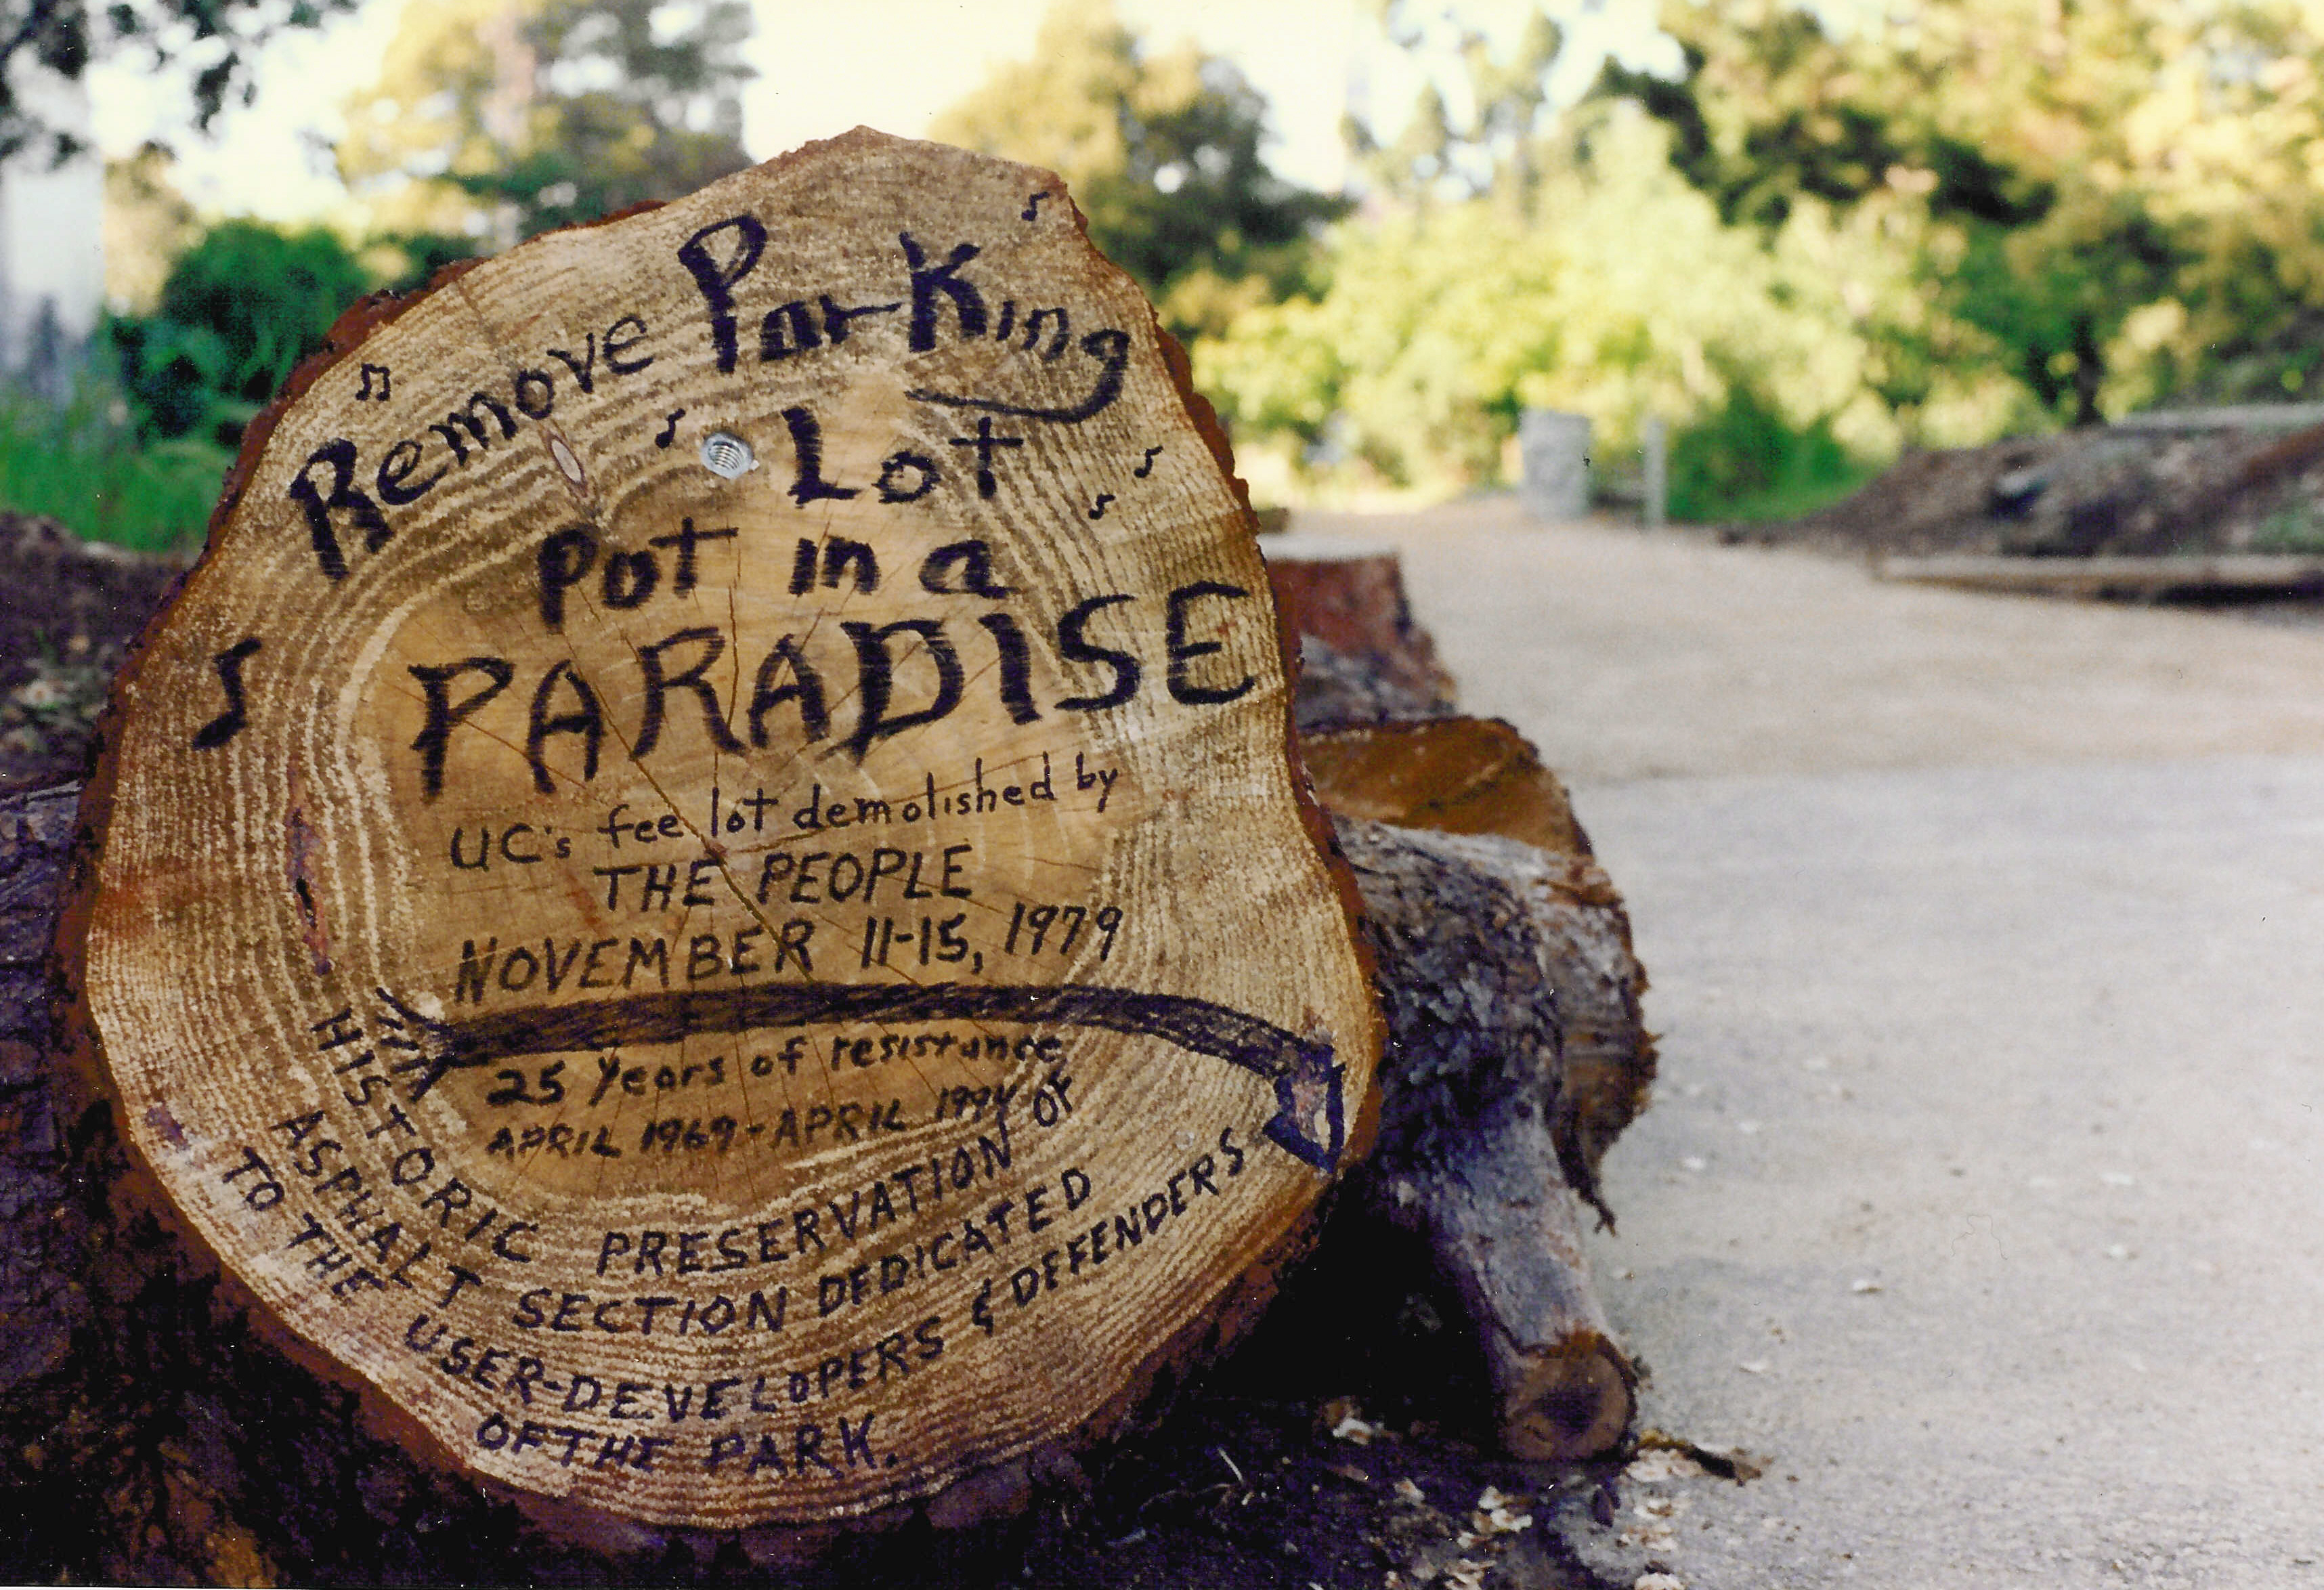 Remove Parking
Lot
Pot in a
PARADISE
UC's fee lot demolished by
THE PEOPLE
NOVEMBER 11-15, 1979
25 Years of resistance
APRIL 1969-APRIL 1994
HISTORIC PRESERVATION OF
ASPHALT SECTION DEDICATED
TO THE USER-DEVELOPERS & DEFENDERS
OF THE PARK.